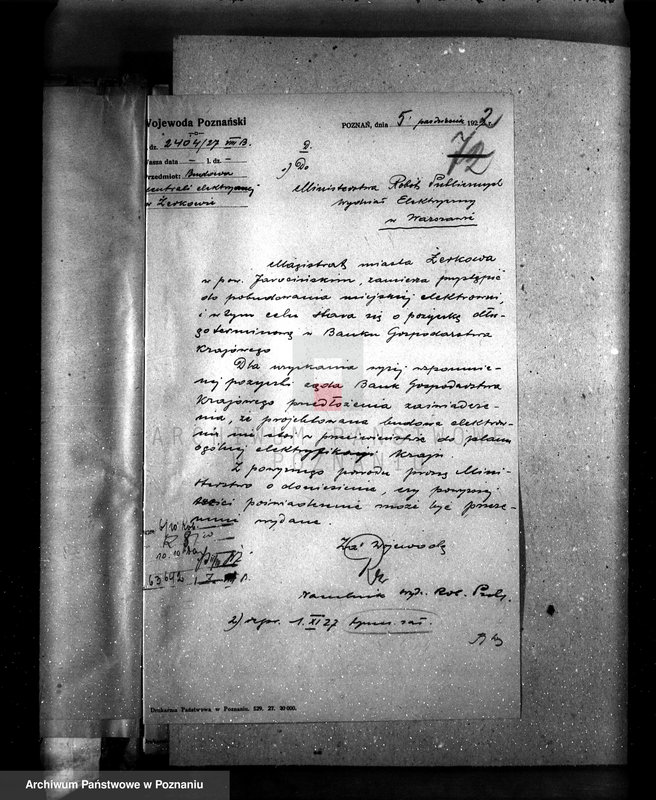 Wojewoda Poznański
POZNAŃ, dnia 5 października 192
dz. 2404/27 VIII B.
Wasza data — l. dz. —
Przedmiot: Budowa
centrali elektrycznej
w Żerkowie
72
1) Do
Ministerstwa Robót Publicznych
Wydział Elektryczny
w Warszawie
Magistrat miasta Żerkowa
w pow. Jarocińskim, zamierza przystąpić
do pobudowania miejskiej elektrowni,
i w tym celu stara się o pożyczkę dłu-
goterminową w Banku Gospodarstwa
Krajowego
Dla uzyskania wyżej wspomnia-
nej pożyczki żąda Bank Gospodarstwa
Krajowego przedłożenia zaświadcze-
nia, że projektowana budowa elektrow-
ni nie stoi w przeciwieństwie do planu
ogólnej elektryfikacji kraju.
Z powyższego powodu proszę Mini-
sterstwo o doniesienie, czy powyższej
treści poświadczenie może być przeze-
mnie wydane.
Za Wojewodę
Naczelnik Wydz. Rob. Publ.
2) 1. XI 27
6/10
10.10
63642
Drukarnia Państwowa w Poznaniu. 529. 27. 30 000.
ARCHIWUM PAŃSTWOWE
W POZNANIU
Archiwum Państwowe w Poznaniu